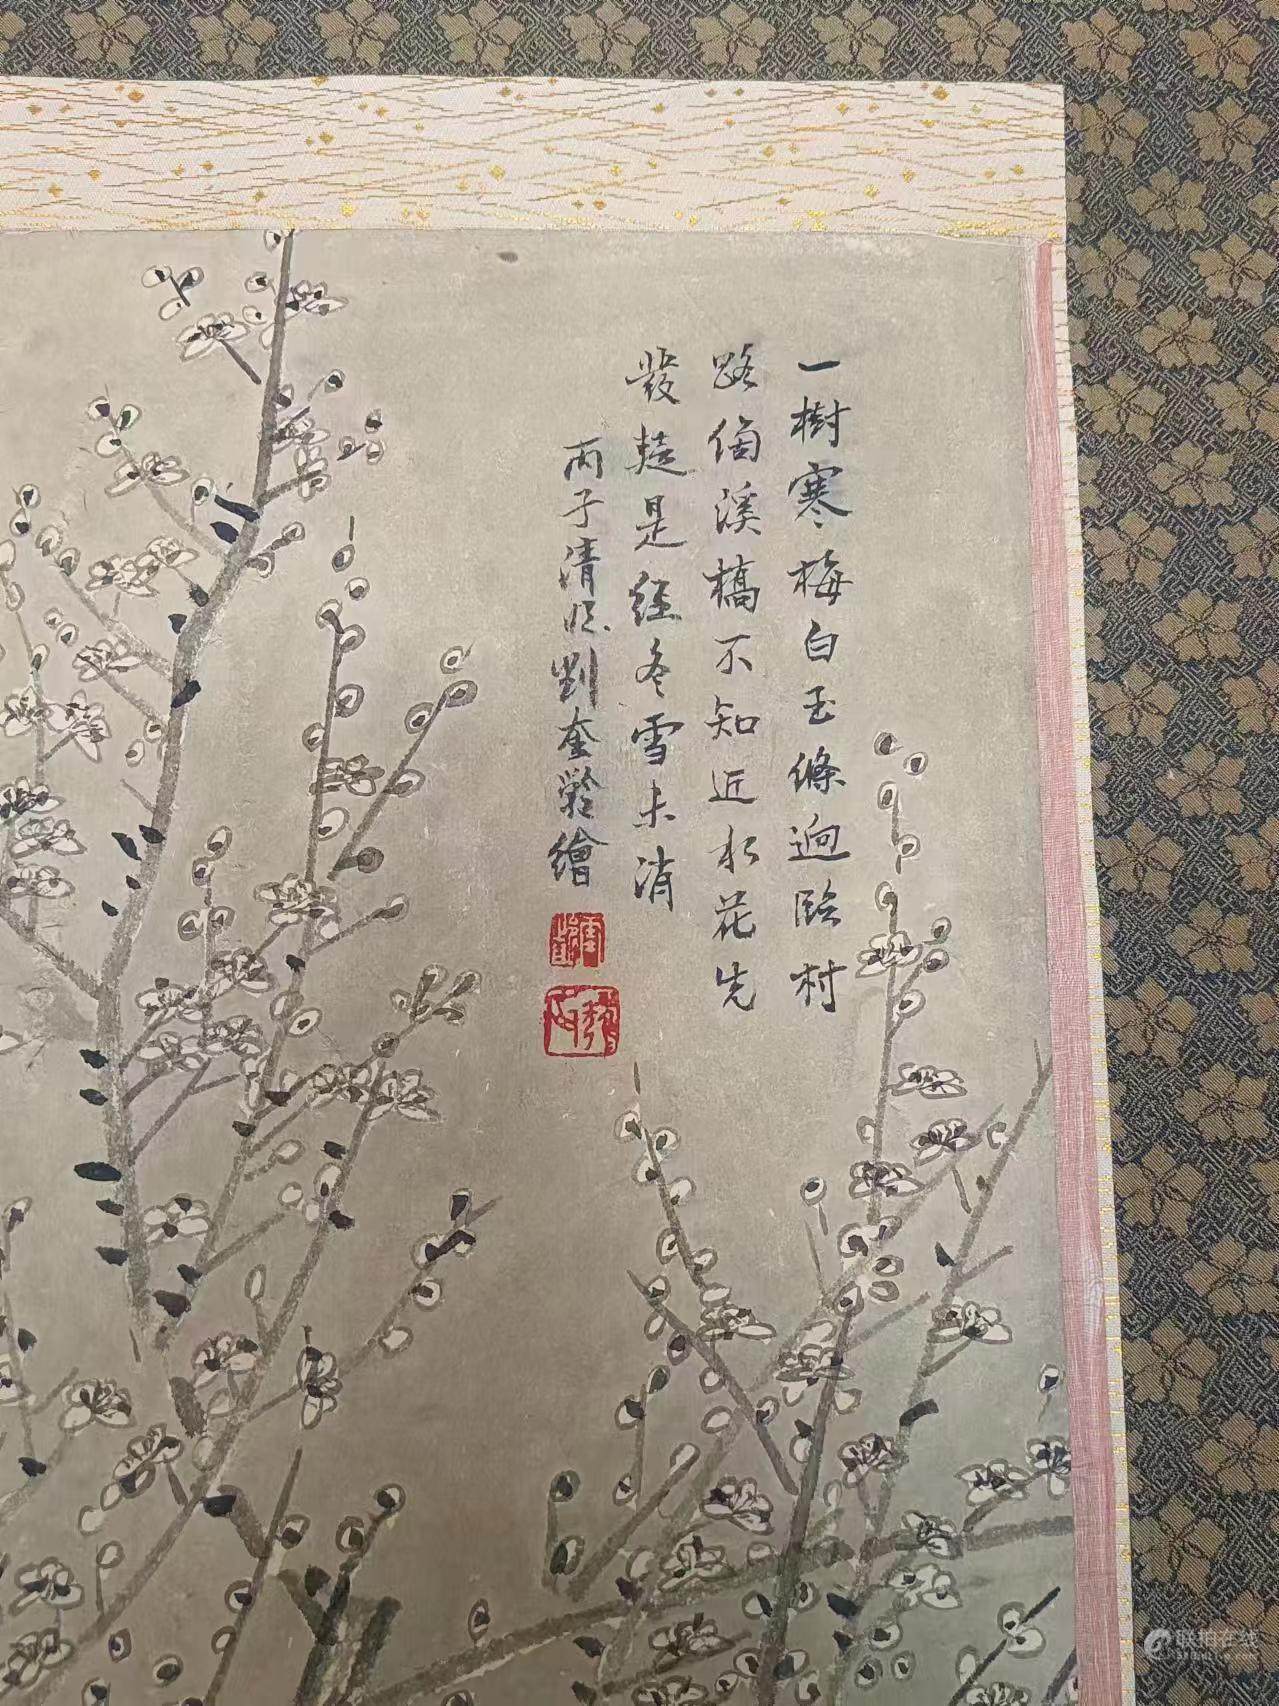 一樹寒梅白玉條迥臨村
路傍溪橋不知近水花先
發疑是經冬雪未消
丙子清明劉奎齡繪
联拍在线